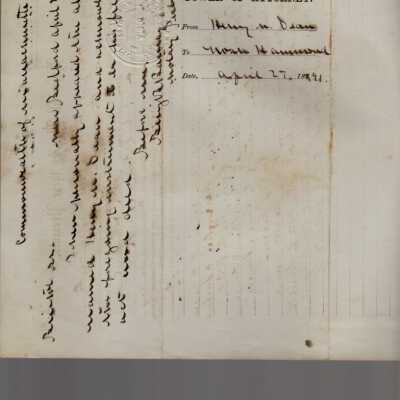 POWER OF ATTORNEY.
From Henry W. Dean
To Noah Hammond
Date, April 27, 1891.
Commonwealth of Massachusetts
Bristol ss. New Bedford April
Then personally appeared the
named Henry W. Dean and acknow
the foregoing instrument to be his free
act and deed.
Before me,
Notary